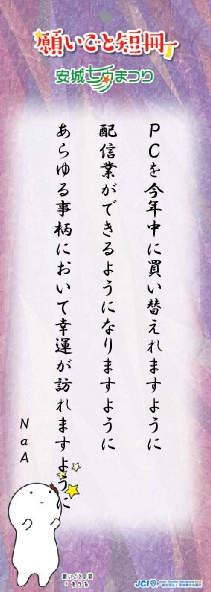 願いごと短冊
安城七夕まつり
PCを今年中に買い替えれますように
配信業ができるようになりますように
あらゆる事柄において幸運が訪れますように
NaA
願いごと短冊
JCI